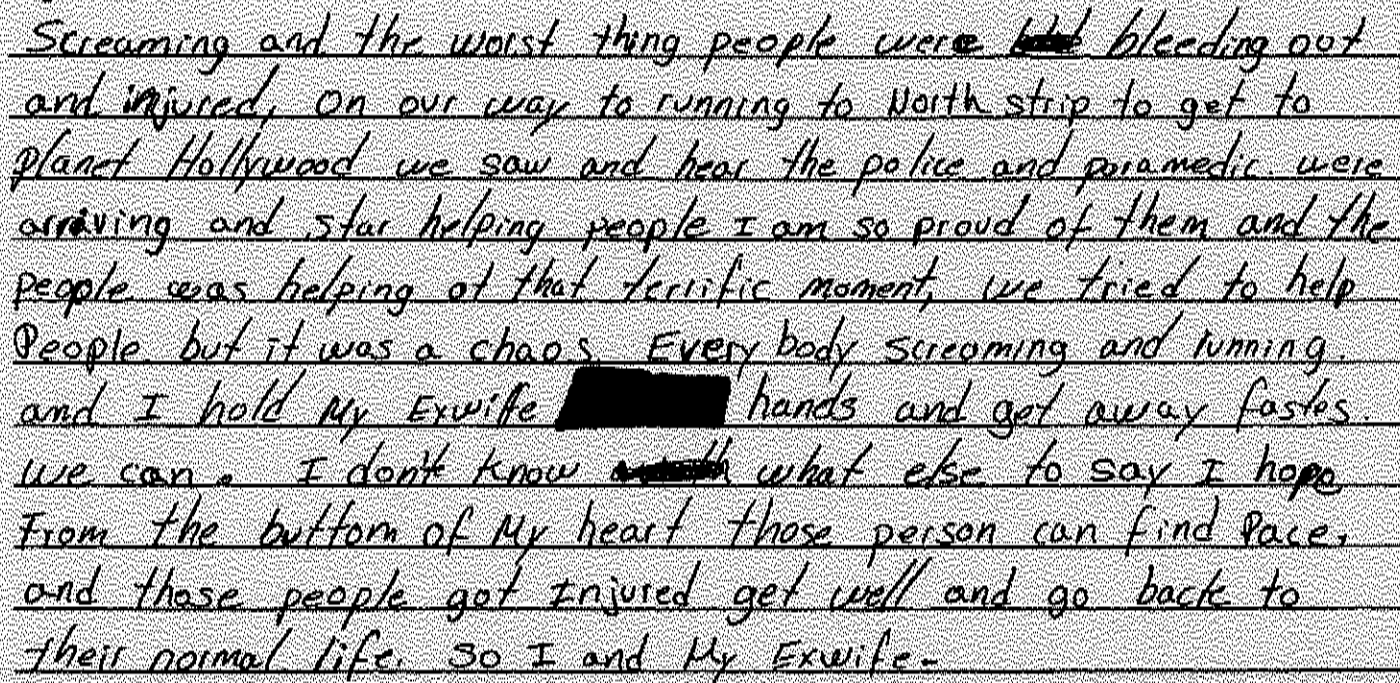 Screaming and the worst thing people were bleeding out
and injured, On our way to running to North strip to get to
planet Hollywood we saw and hear the police and paramedic were
arriving and star helping people I am so proud of them and the
people was helping at that terrific moment, we tried to help
People but it was a chaos. Every body screaming and running.
and I hold My Exwife hands and get away fastes
we can. I don't know what else to say I hope
From the buttom of My heart those person can find Pace,
and those people got Injured get well and go back to
their normal life. So I and My Exwife-